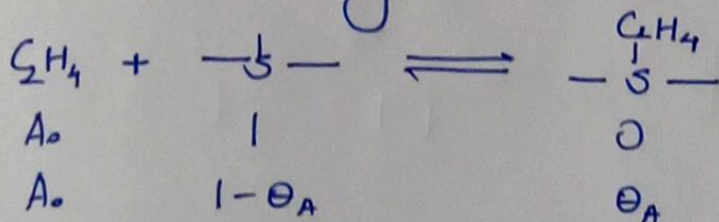 C₂H₄
C₂H₄ + —S— ⇌ —S—
A₀ 1 0
A₀ 1-θ_A θ_A